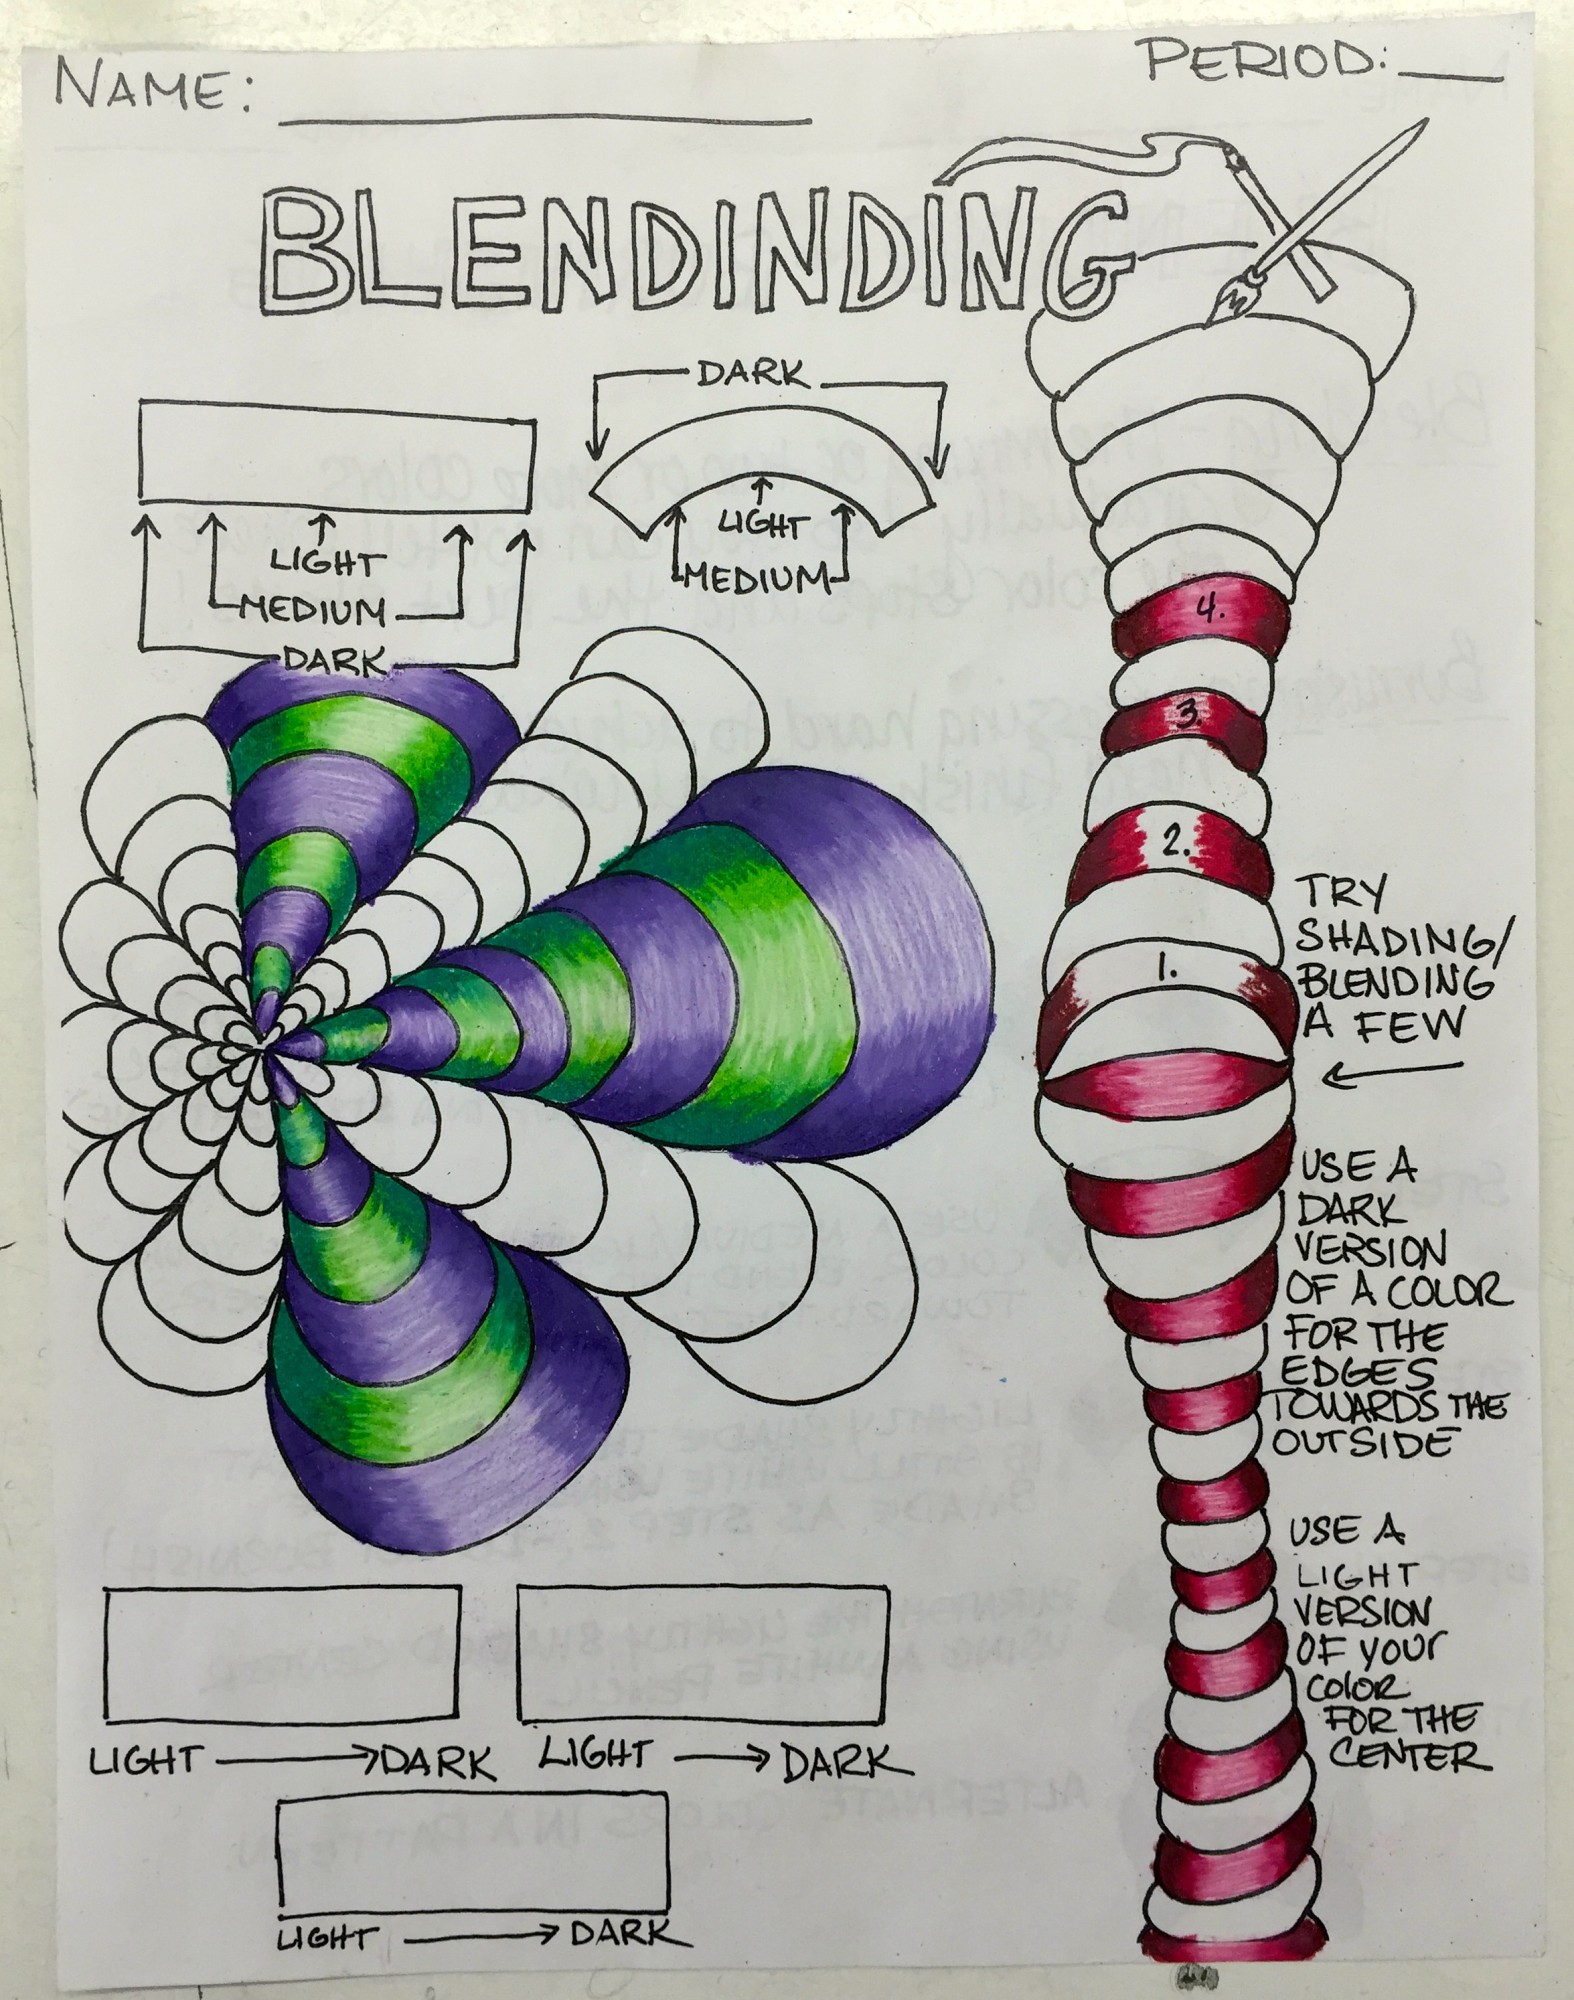 NAME: ____________
PERIOD: ___
BLENDINDING
DARK
LIGHT
MEDIUM
LIGHT
MEDIUM
DARK
4.
3.
2.
1.
TRY
SHADING/
BLENDING
A FEW
USE A
DARK
VERSION
OF A COLOR
FOR THE
EDGES
TOWARDS THE
OUTSIDE
USE A
LIGHT
VERSION
OF YOUR
COLOR
FOR THE
CENTER
LIGHT → DARK
LIGHT → DARK
LIGHT → DARK